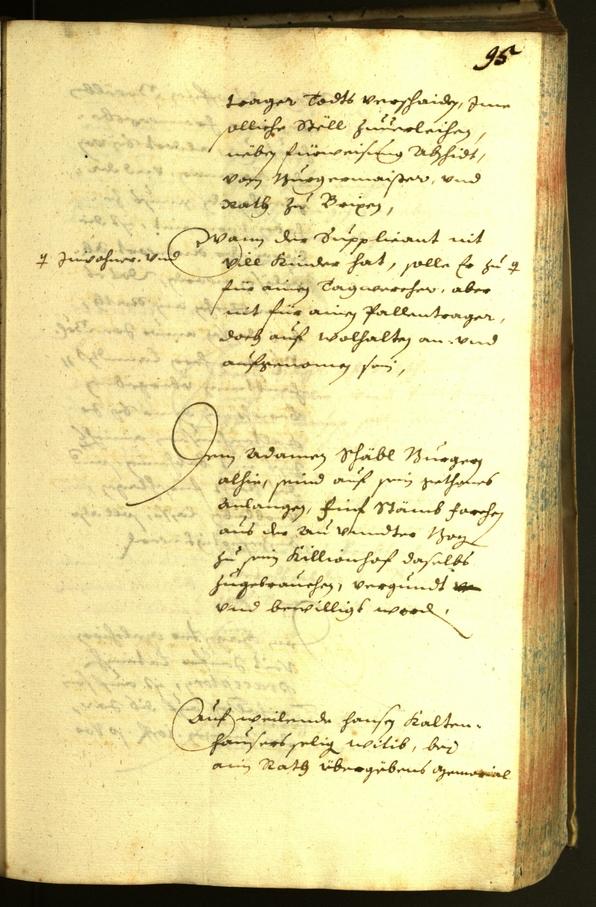 95
trager Todts verschaiden, Ime
solliche Stöll zuuerleihen,
neben fürweisung Abschidt,
vom Burgermaister, und
Rath zu Brixen,
wann der Supplicant nit
Inwohner und
vill Kinder hat, solle Er zu
für ainen Tagwercher, aber
nit für ainen Pallentrager,
doch auf wolhalten an- und
aufgenomen sein,
Dem Adamen Schäbl Burger
alhie, seind auf sein gethones
Anlangen, fünf Stämb farchen
aus der
zu sein Killionhof daselbs
zugebrauchen, vergundt
und bewilligt word.
Auf weilende Hansen Kalten-
hausers selig witib, bey
ain Rath übergebens Memorial